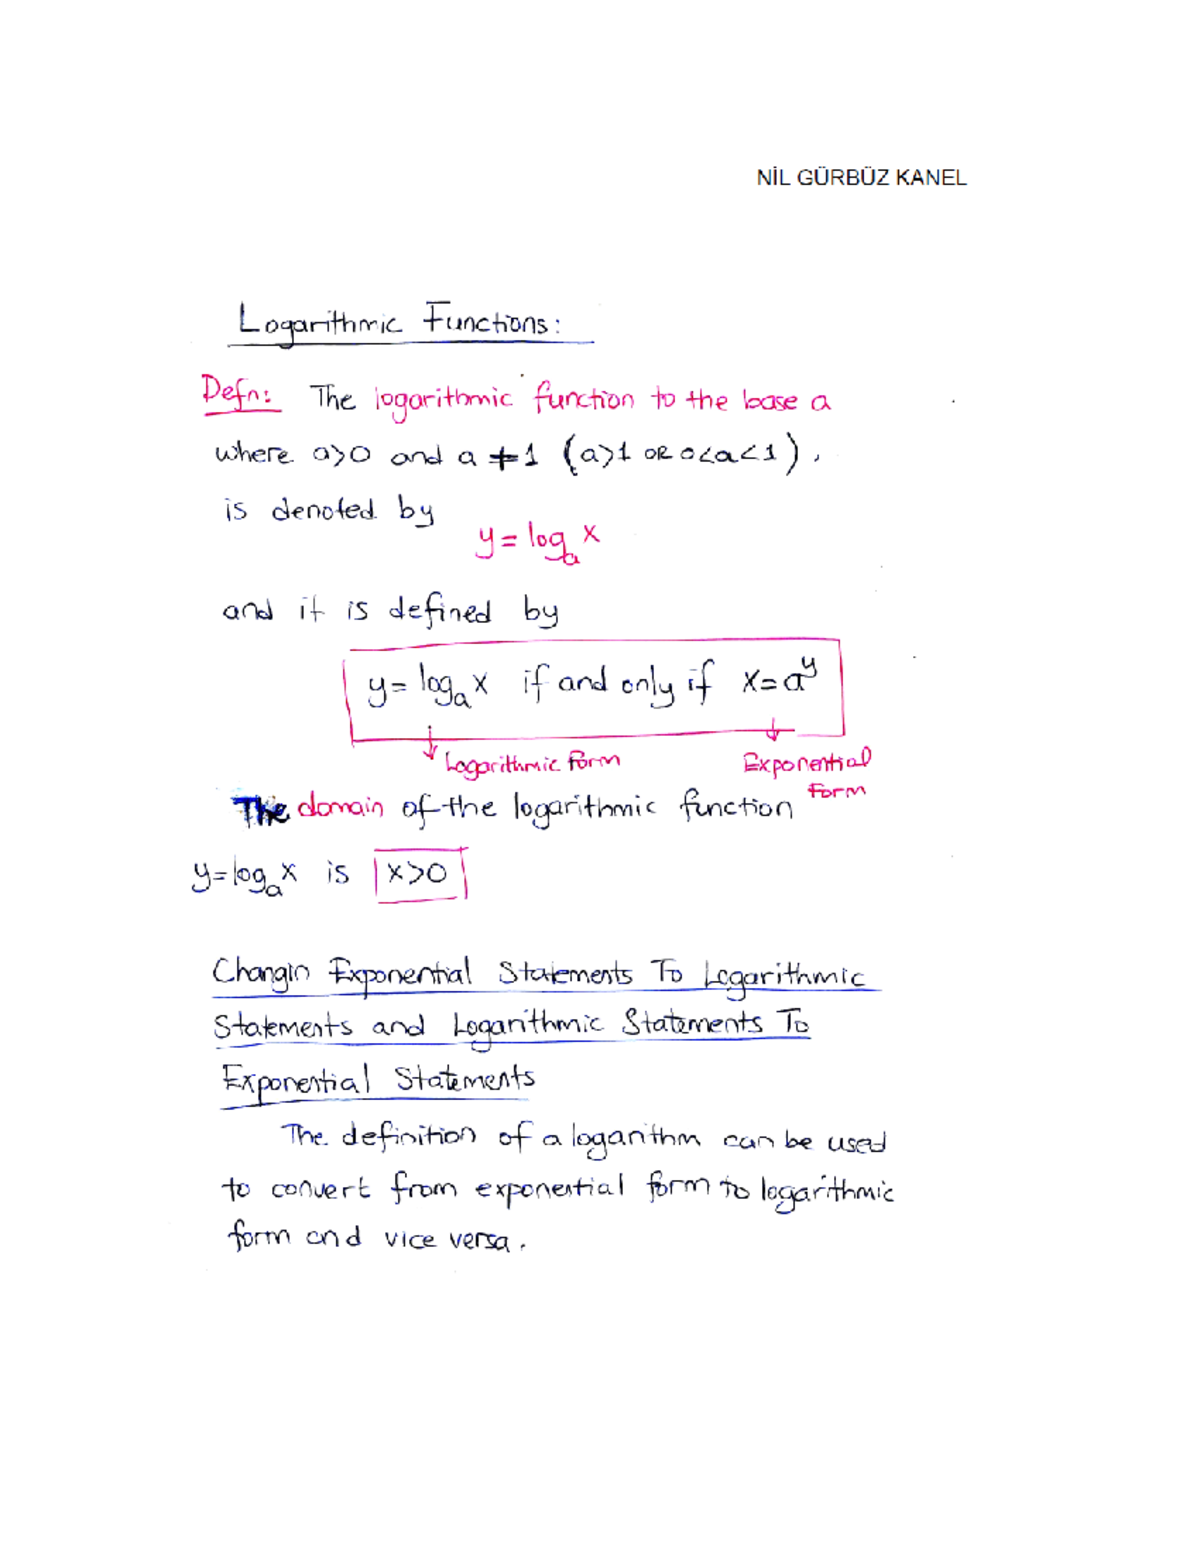 NİL GÜRBÜZ KANEL
Logarithmic Functions:
Defn: The logarithmic function to the base a
where a>0 and a ≠ 1 (a>1 OR 0<a<1),
is denoted by
y = logₐ x
and it is defined by
y = logₐ x if and only if x = aʸ
Logarithmic form Exponential form
The domain of the logarithmic function
y = logₐ x is x>0
Changin Exponential Statements To Logarithmic
Statements and Logarithmic Statements To
Exponential Statements
The definition of a logarithm can be used
to convert from exponential form to logarithmic
form and vice versa.